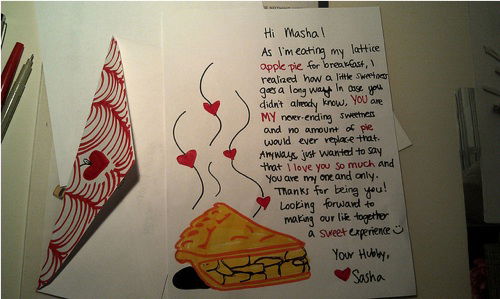 Hi Masha!
As I'm eating my lattice
apple pie for breakfast, I
realized how a little sweetness
goes a long way. In case you
didn't already know, YOU are
MY never-ending sweetness
and no amount of pie
would ever replace that.
Anyways, just wanted to say
that I love you so much and
you are my one and only.
Thanks for being you!
Looking forward to
making our life together
a sweet experience
Your Hubby,
Sasha